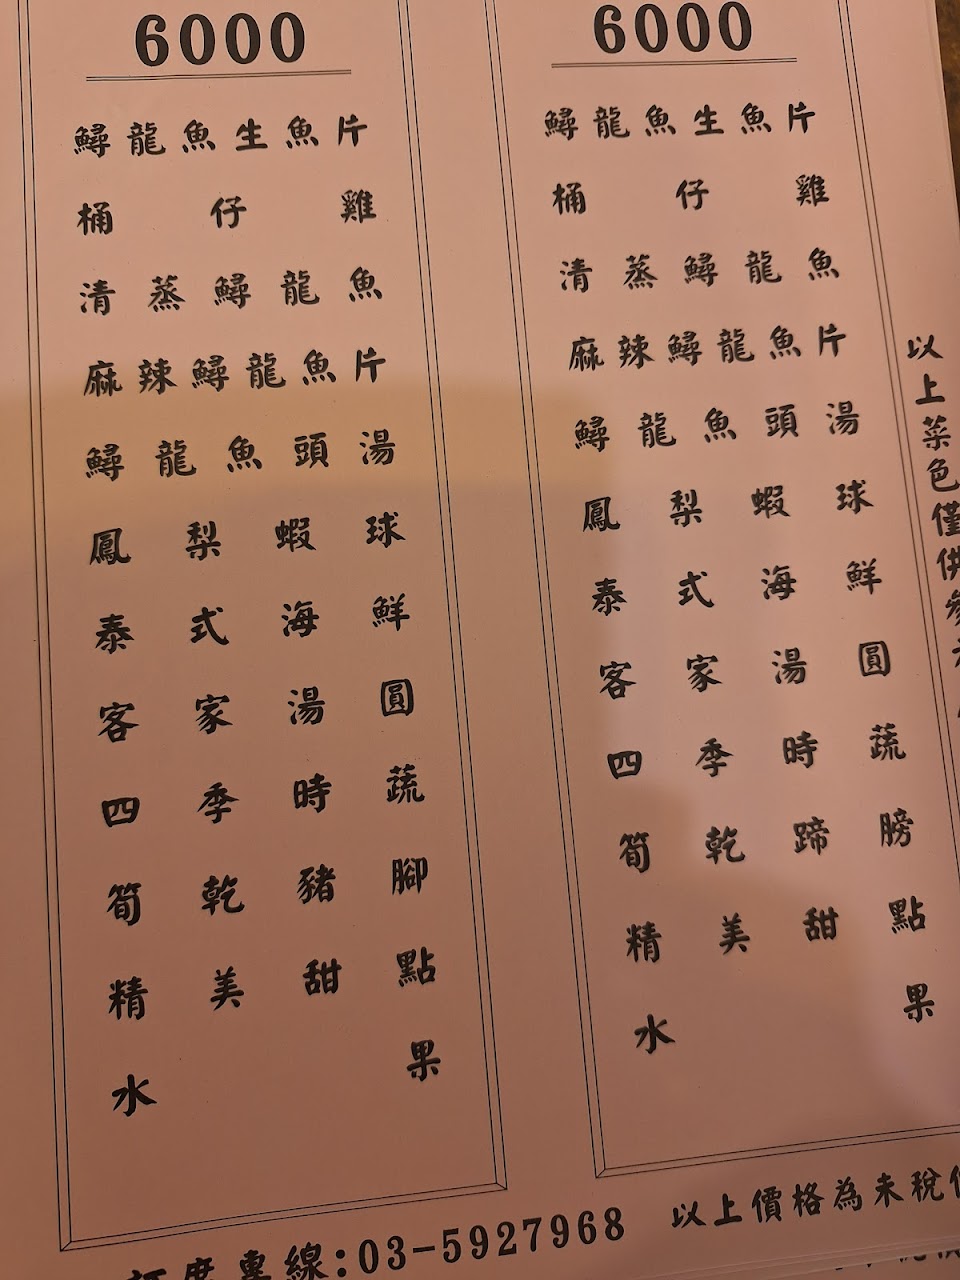 6000
鱘龍魚生魚片
桶仔雞
清蒸鱘龍魚
麻辣鱘龍魚片
鱘龍魚頭湯
鳳梨蝦球
泰式海鮮
客家湯圓
四季時蔬
筍乾豬腳
精美甜點
水果
6000
鱘龍魚生魚片
桶仔雞
清蒸鱘龍魚
麻辣鱘龍魚片
鱘龍魚頭湯
鳳梨蝦球
泰式海鮮
客家湯圓
四季時蔬
筍乾蹄膀
精美甜點
水果
以上菜色僅供參考
訂席專線:03-5927968
以上價格為未稅價